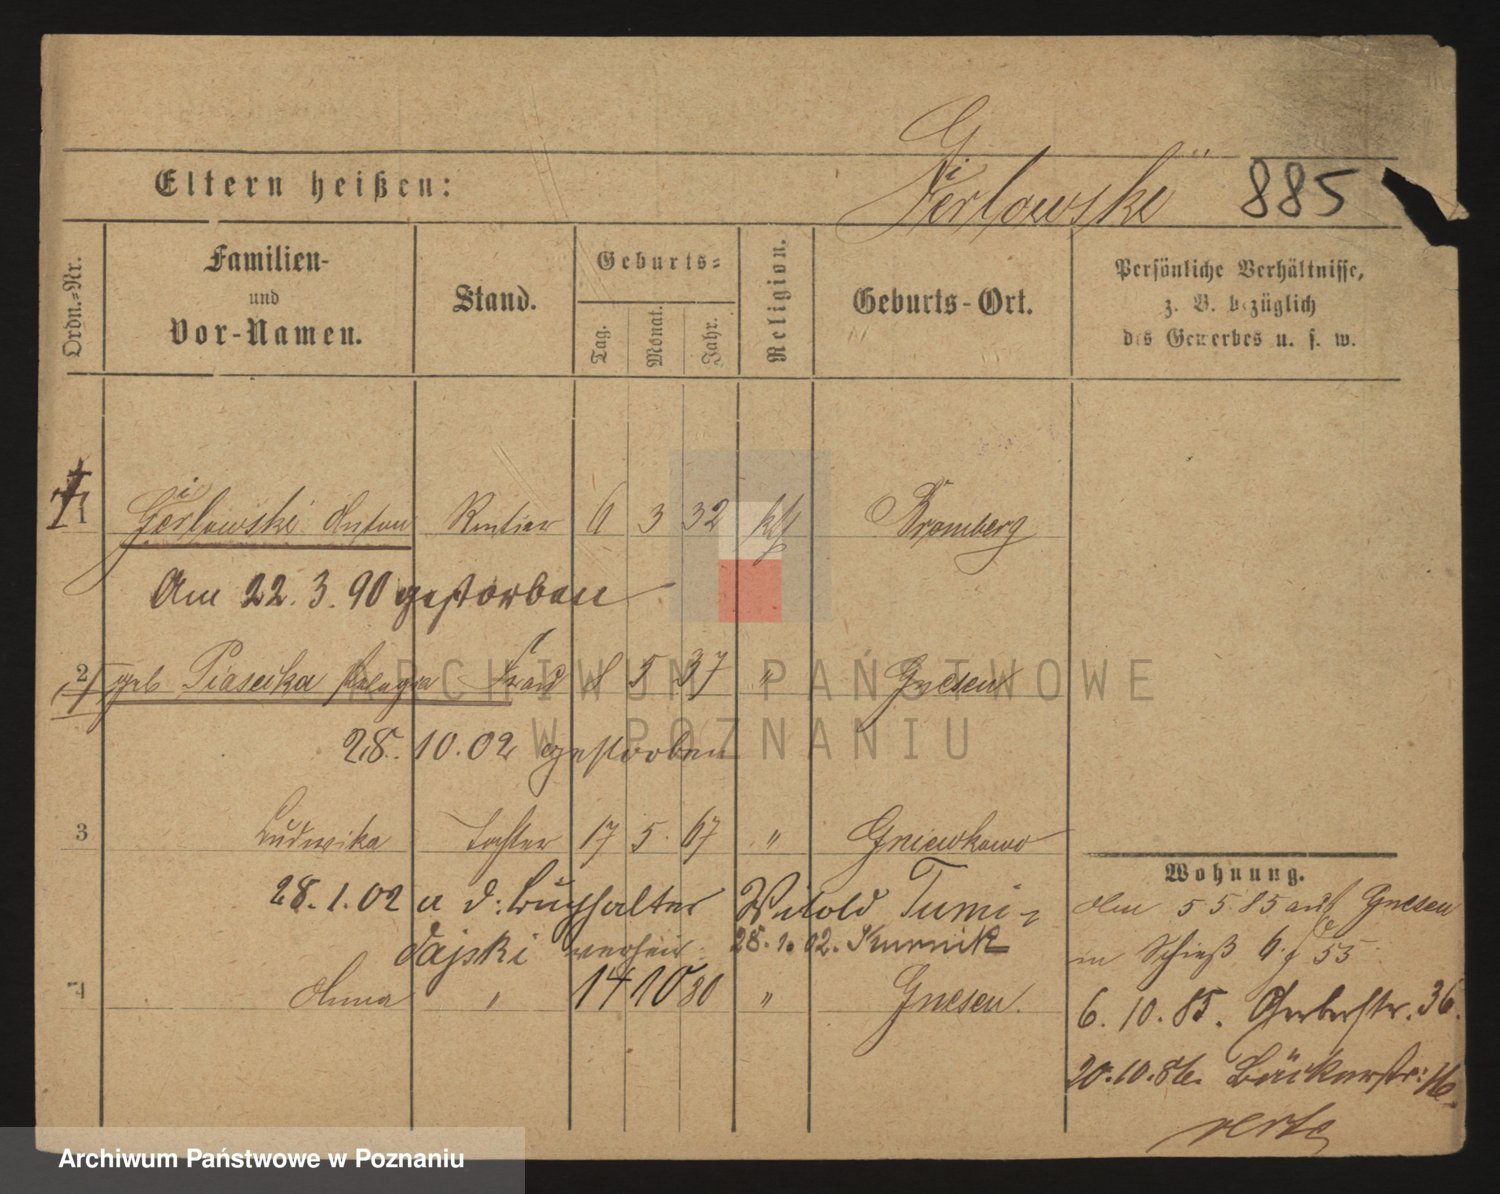 Gierlowski 885
Eltern heißen:
Ordn.=Nr.
Familien-
und
Vor-Namen.
Stand.
Geburts=
Tag.
Monat.
Jahr.
Religion.
Geburts-Ort.
Persönliche Verhältnisse,
z. B. bezüglich
des Gewerbes u. s. w.
1 Gierlowski Anton Rentier 6 3 32 kth Bromberg
Am 22. 3. 90 gestorben
2 geb Piasecka Pelagia Frau 8 5 37 " Gnesen
28. 10. 02 gestorben
3 Ludwika Tochter 17 5. 67 " Gniewkowo
28. 1. 02 a d: Buchhalter Witold Tumi-
dajski verheir. 28. 1. 02. Kurnik
4 Anna " 14 10 80 " Gnesen.
Wohnung.
Am 5 5. 85 auf Gnesen
in Schieß 6
6. 10. 85. Gerberstr. 36.
20. 10. 86. Bäckerstr: 16.
verte
ARCHIWUM PAŃSTWOWE
W POZNANIU
Archiwum Państwowe w Poznaniu